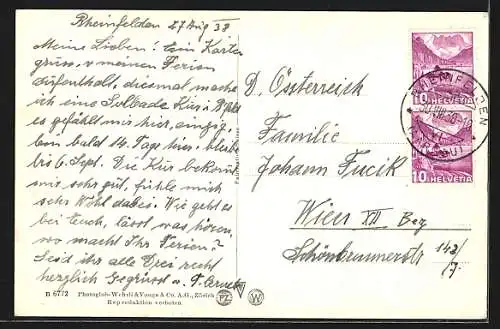 Rheinfelden 27 Aug 38
Meine Lieben! Ein Karten
gruss v meinen Ferien
Aufenthalt, diesmal mache
ich eine Solbade Kur i
es gefällt mir hier, einzig,
bin bald 14. Tage hier, bleibe
bis 6. Sept. Die Kur bekomt
mir sehr gut, fühle mich
sehr Wohl dabei. Wie geht es
bei Euch, lässt was hören,
wo macht Ihr Ferien?
Seid ihr alle Drei recht
herzlich Gegrüsst v.
B 6772 Photoglob-Wehrli & Vouga & Co. A.G., Zürich
Reproduktion verboten
PZ W
D. Österreich
Familie
Johann Fucik
Wien XII Bez
Schönbrunnerstr 142/7.
10 HELVETIA
10 HELVETIA
RHEINFELDEN
30.VIII.38